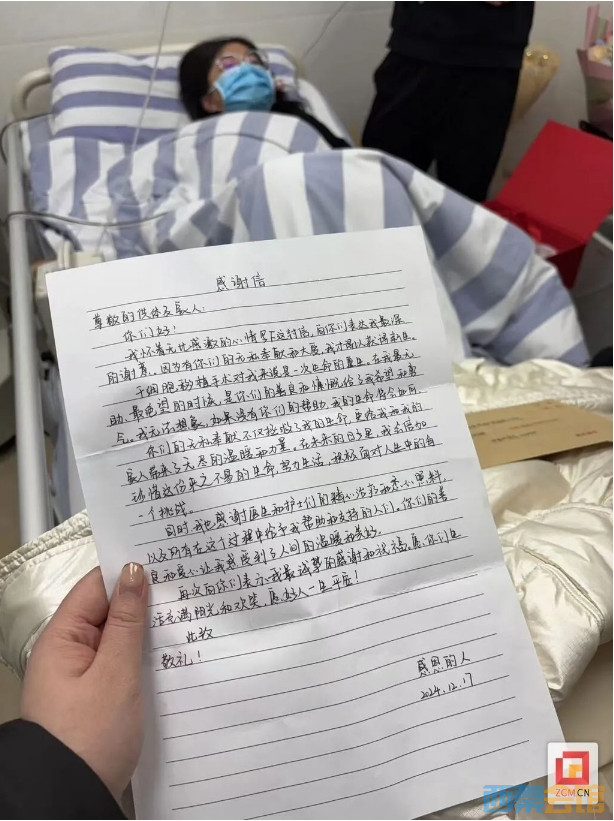 感谢信
尊敬的供体及家人:
你们好!
我怀着无比感激的心情写下这封信,向你们表达我最深
的谢意。因为有你们的无私奉献和大爱,我才得以获得新生。
干细胞移植手术对我来说是一次生命的重生。在我最无
助、最绝望的时候,是你们的善良和慷慨给了我希望和勇
气。我无法想象,如果没有你们的帮助,我的生命将会如何
你们的无私奉献不仅拯救了我的生命,更给我和我的
家人带来了无尽的温暖和力量。在未来的日子里,我会倍加
珍惜这份来之不易的生命,努力生活,积极面对人生中的每
一个挑战。
同时,我也感谢医生和护士们的精心治疗和悉心照料,
以及所有在这个过程中给予我帮助和支持的人们,你们的善
良和爱心让我感受到了人间的温暖和美好。
再次向你们表示我最诚挚的感谢和祝福,愿你们生
活充满阳光和欢笑,愿好人一生平安!
此致
敬礼!
感恩的人
2024.12.17
ZGM.CN